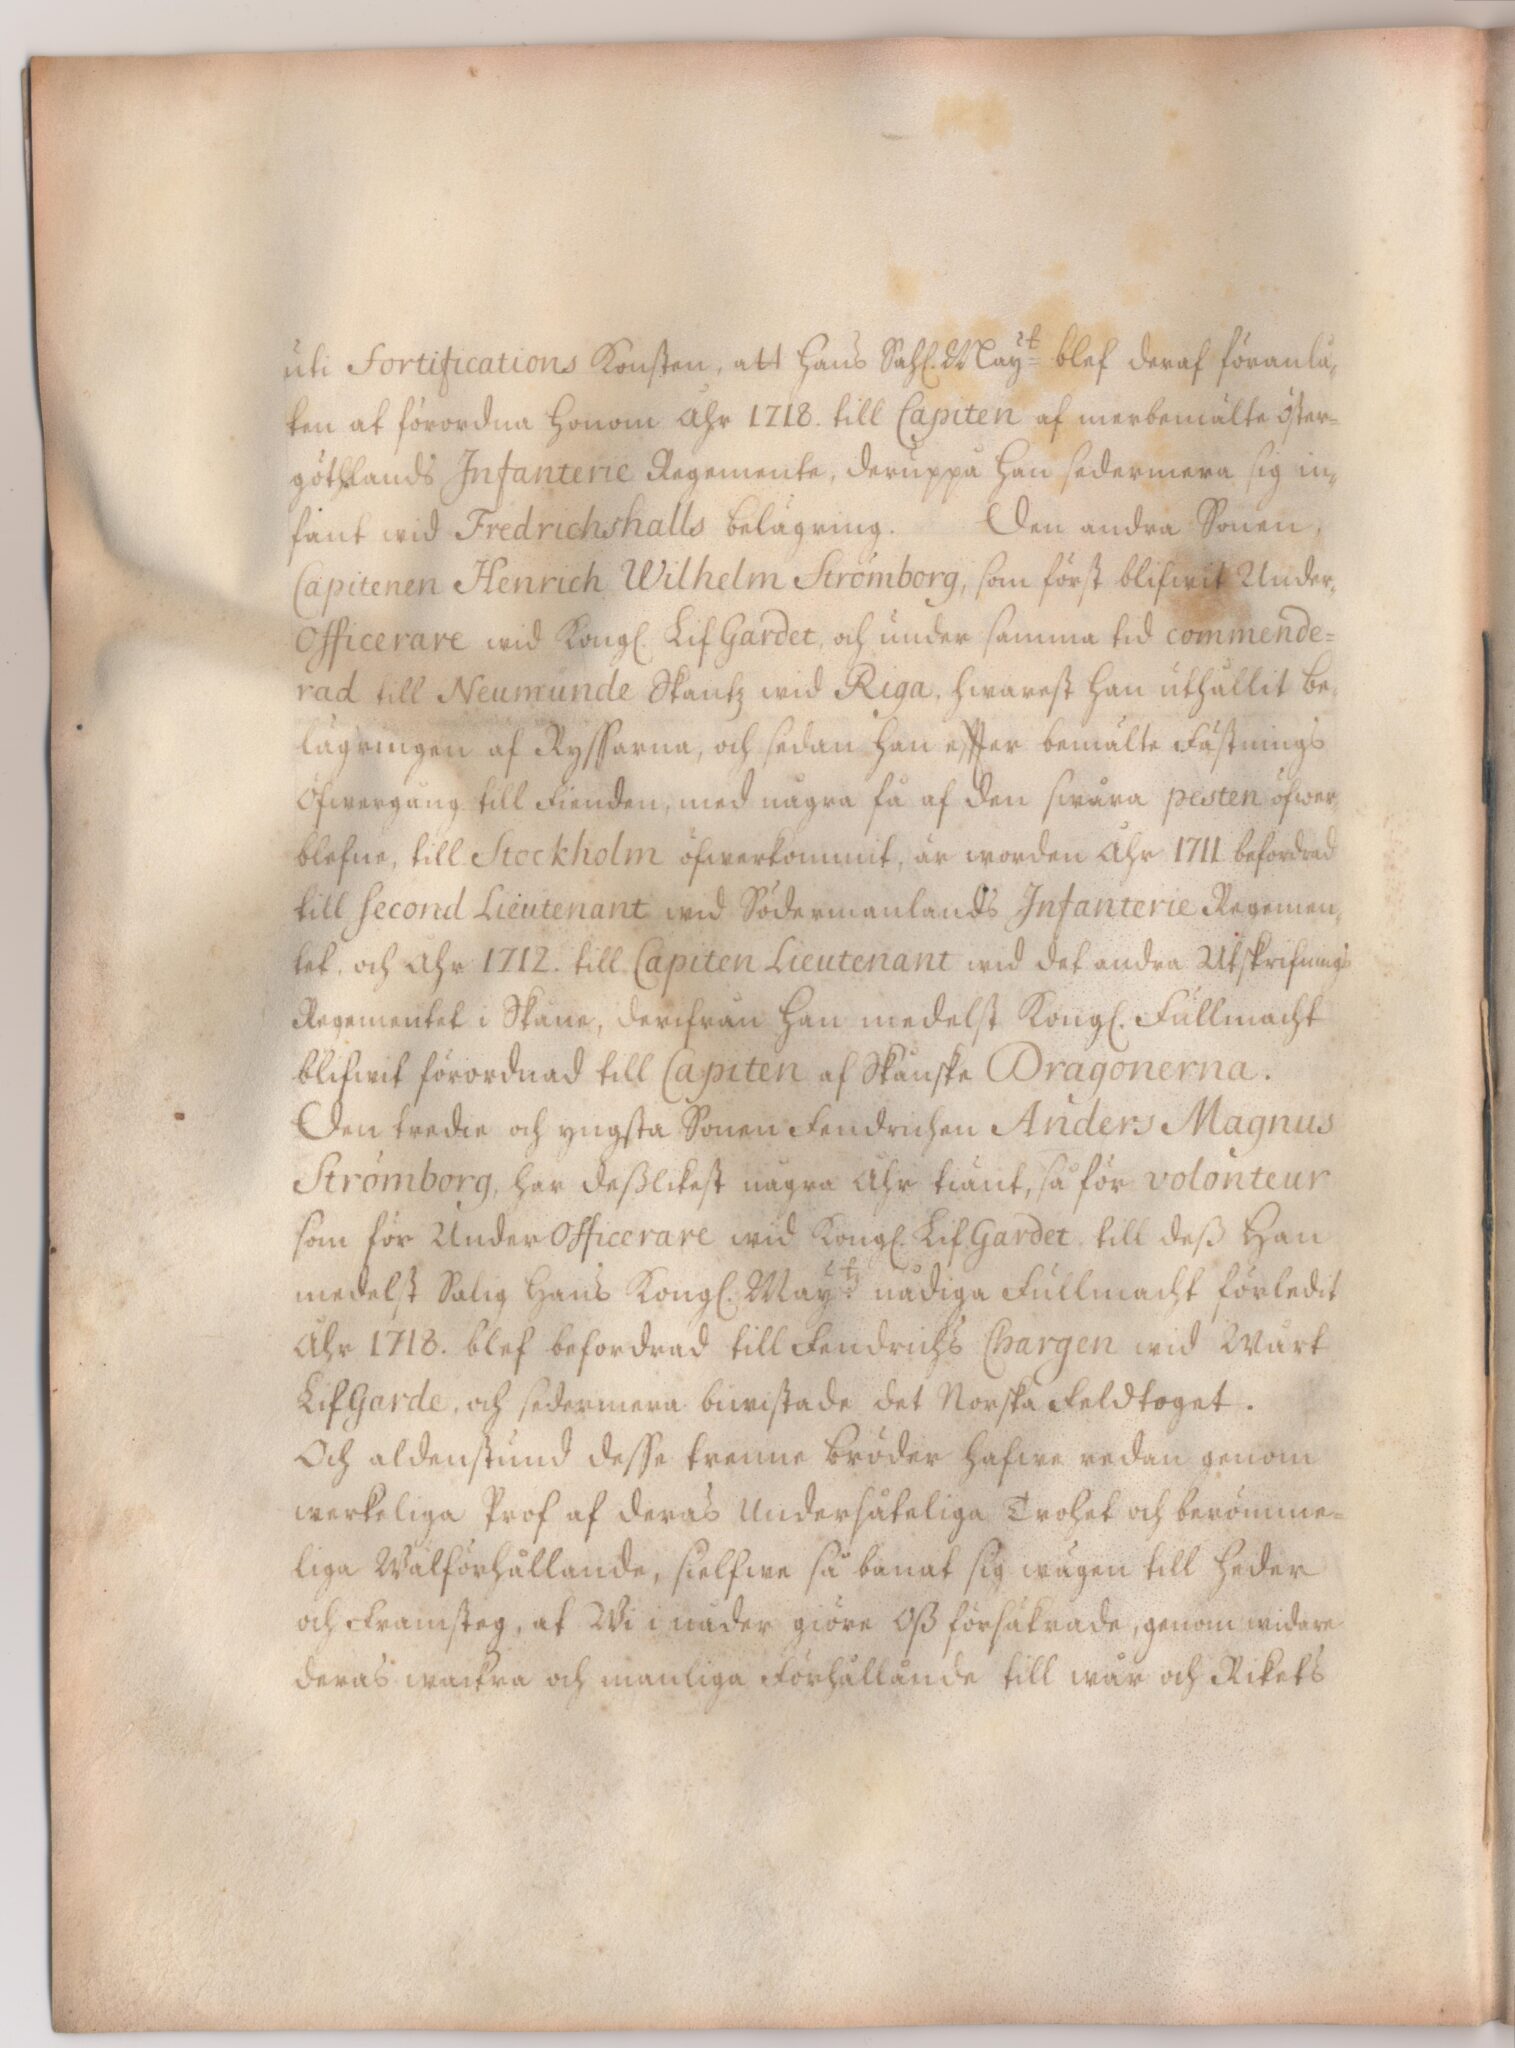 uti Fortifications Konsten, att Hans Sahl. May:t blef deraf föranlå,
ten at förordna honom Åhr 1718. till Capiten af merbemälte öster-
göthlands Infanterie Regemente, deruppå han sedermera sig in,
fant wid Fredrichshalls belägring. Den andra Sonen,
Capitenen Henrich Wilhelm Strömborg, som först blifwit Under,
Officerare wid Kongl. Lif Gardet, och under samma tid commende=
rad till Neumünde Skantz wid Riga, hwarest han uthållit be,
lägringen af Ryssarna, och sedan han effter bemälte Fästnings
Öfwergång till Fienden, med några få af den swåra pesten öfwer,
blefne, till Stockholm öfwerkommit, är worden Åhr 1711 befordrad
till second Lieutenant wid Södermanlands Infanterie Regemen,
tet, och Åhr 1712. till Capiten Lieutenant wid det andra Utskrifnings
Regementet i Skåne, derifrån han medelst Kongl. Fullmacht
blifwit förordnad till Capiten af Skånske Dragonerna.
Den tredie och yngsta Sonen Fendrichen Anders Magnus
Strömborg, har deßlikest några Åhr tiänt, så för volonteur
som för Under Officerare wid Kongl. Lif Gardet till deß Han
medelst Salig Hans Kongl. May:tz nådiga Fullmacht förledit
Åhr 1718. blef befordrad till Fendrichs Chargen wid Wårt
Lif Garde, och sedermera biwistade det Norska Feldtoget.
Och aldenstund desse trenne bröder hafwe redan genom
werkeliga Prof af deras Undersåteliga Trohet och berömme=
liga Wälförhållande, sielfwe så banat sig wägen till heder
och framsteg, at Wi i nåder giöre Oß försäkrade, genom widare
deras wackra och manliga Förhållande till wår och Rikets